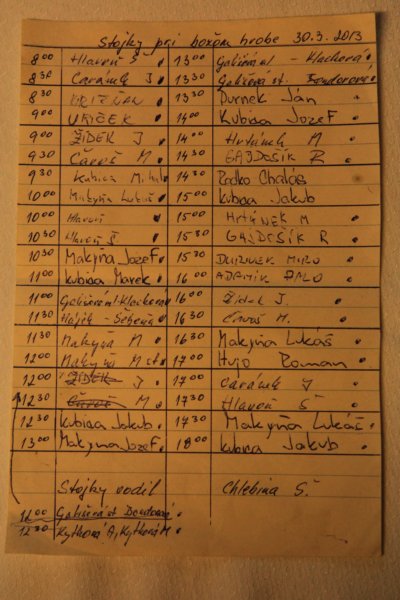 Stojky pri božom hrobe 30.3.2013
8 00 Hlavoň Š 13 00 Gališená st - Klachová
8 30 Caránek J 13 30 Gališená st.
8 30 13 30 Durnek Ján
9 00 14 00 Kubica Jozef
9 00 ŽIDEK J 14 00 Hrtánek M
9 30 Čavoš M 14 30 GAJDOŠÍK R
9 30 Kubica 14 30 Radko Chalás
10 00 Makyňa Lukáš 15 00 Kubica Jakub
10 00 Hlavoň 15 00 HRTÁNEK M
10 30 Hlavoň Š 15 30 GAJDOŠÍK R
10 30 Makyňa Jozef 15 30 DURNEK MIRO
11 00 Kubica Marek 16 00 ADAMÍK PALO
11 00 Gališená Klachová 16 00 Židek J.
11 30 16 30 Čavoš M.
11 30 Makyňa M 16 30 Makyňa Lukáš
12 00 Makyňa 17 00 Hujo Roman
12 00 ŽIDEK J 17 00 Caránek J
12 30 Čavoš M 17 30 Hlavoň Š
12 30 Kubica Jakub 17 30 Makyňa Lukáš
13 00 Makyňa Jozef 18 00 Kubica Jakub
Stojky vodil Chlebina Š.
12 00 Gališená st
12 30 Kytková A, Kytková M